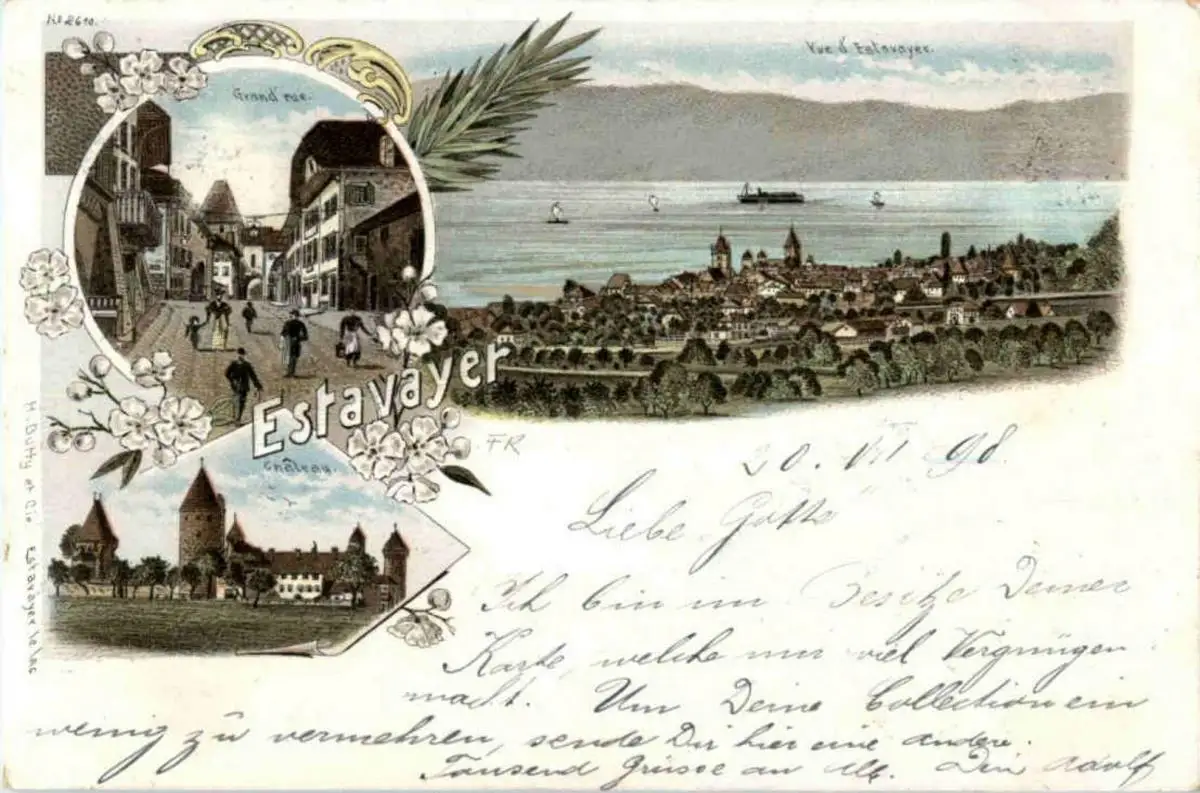 No 2610.
Vue d'Estavayer.
Grand'rue.
Estavayer
FR
Château.
H. Butty et Cie Estavayer le lac
20. VII 98.
Liebe Gotte
Ich bin im Besitze Deiner
Karte, welche mir viel Vergnügen
macht. Um Deine Collection ein
wenig zū vermehren, sende Dir hier eine andere.
Tausend Grüsse an Alle. Dein Adolf